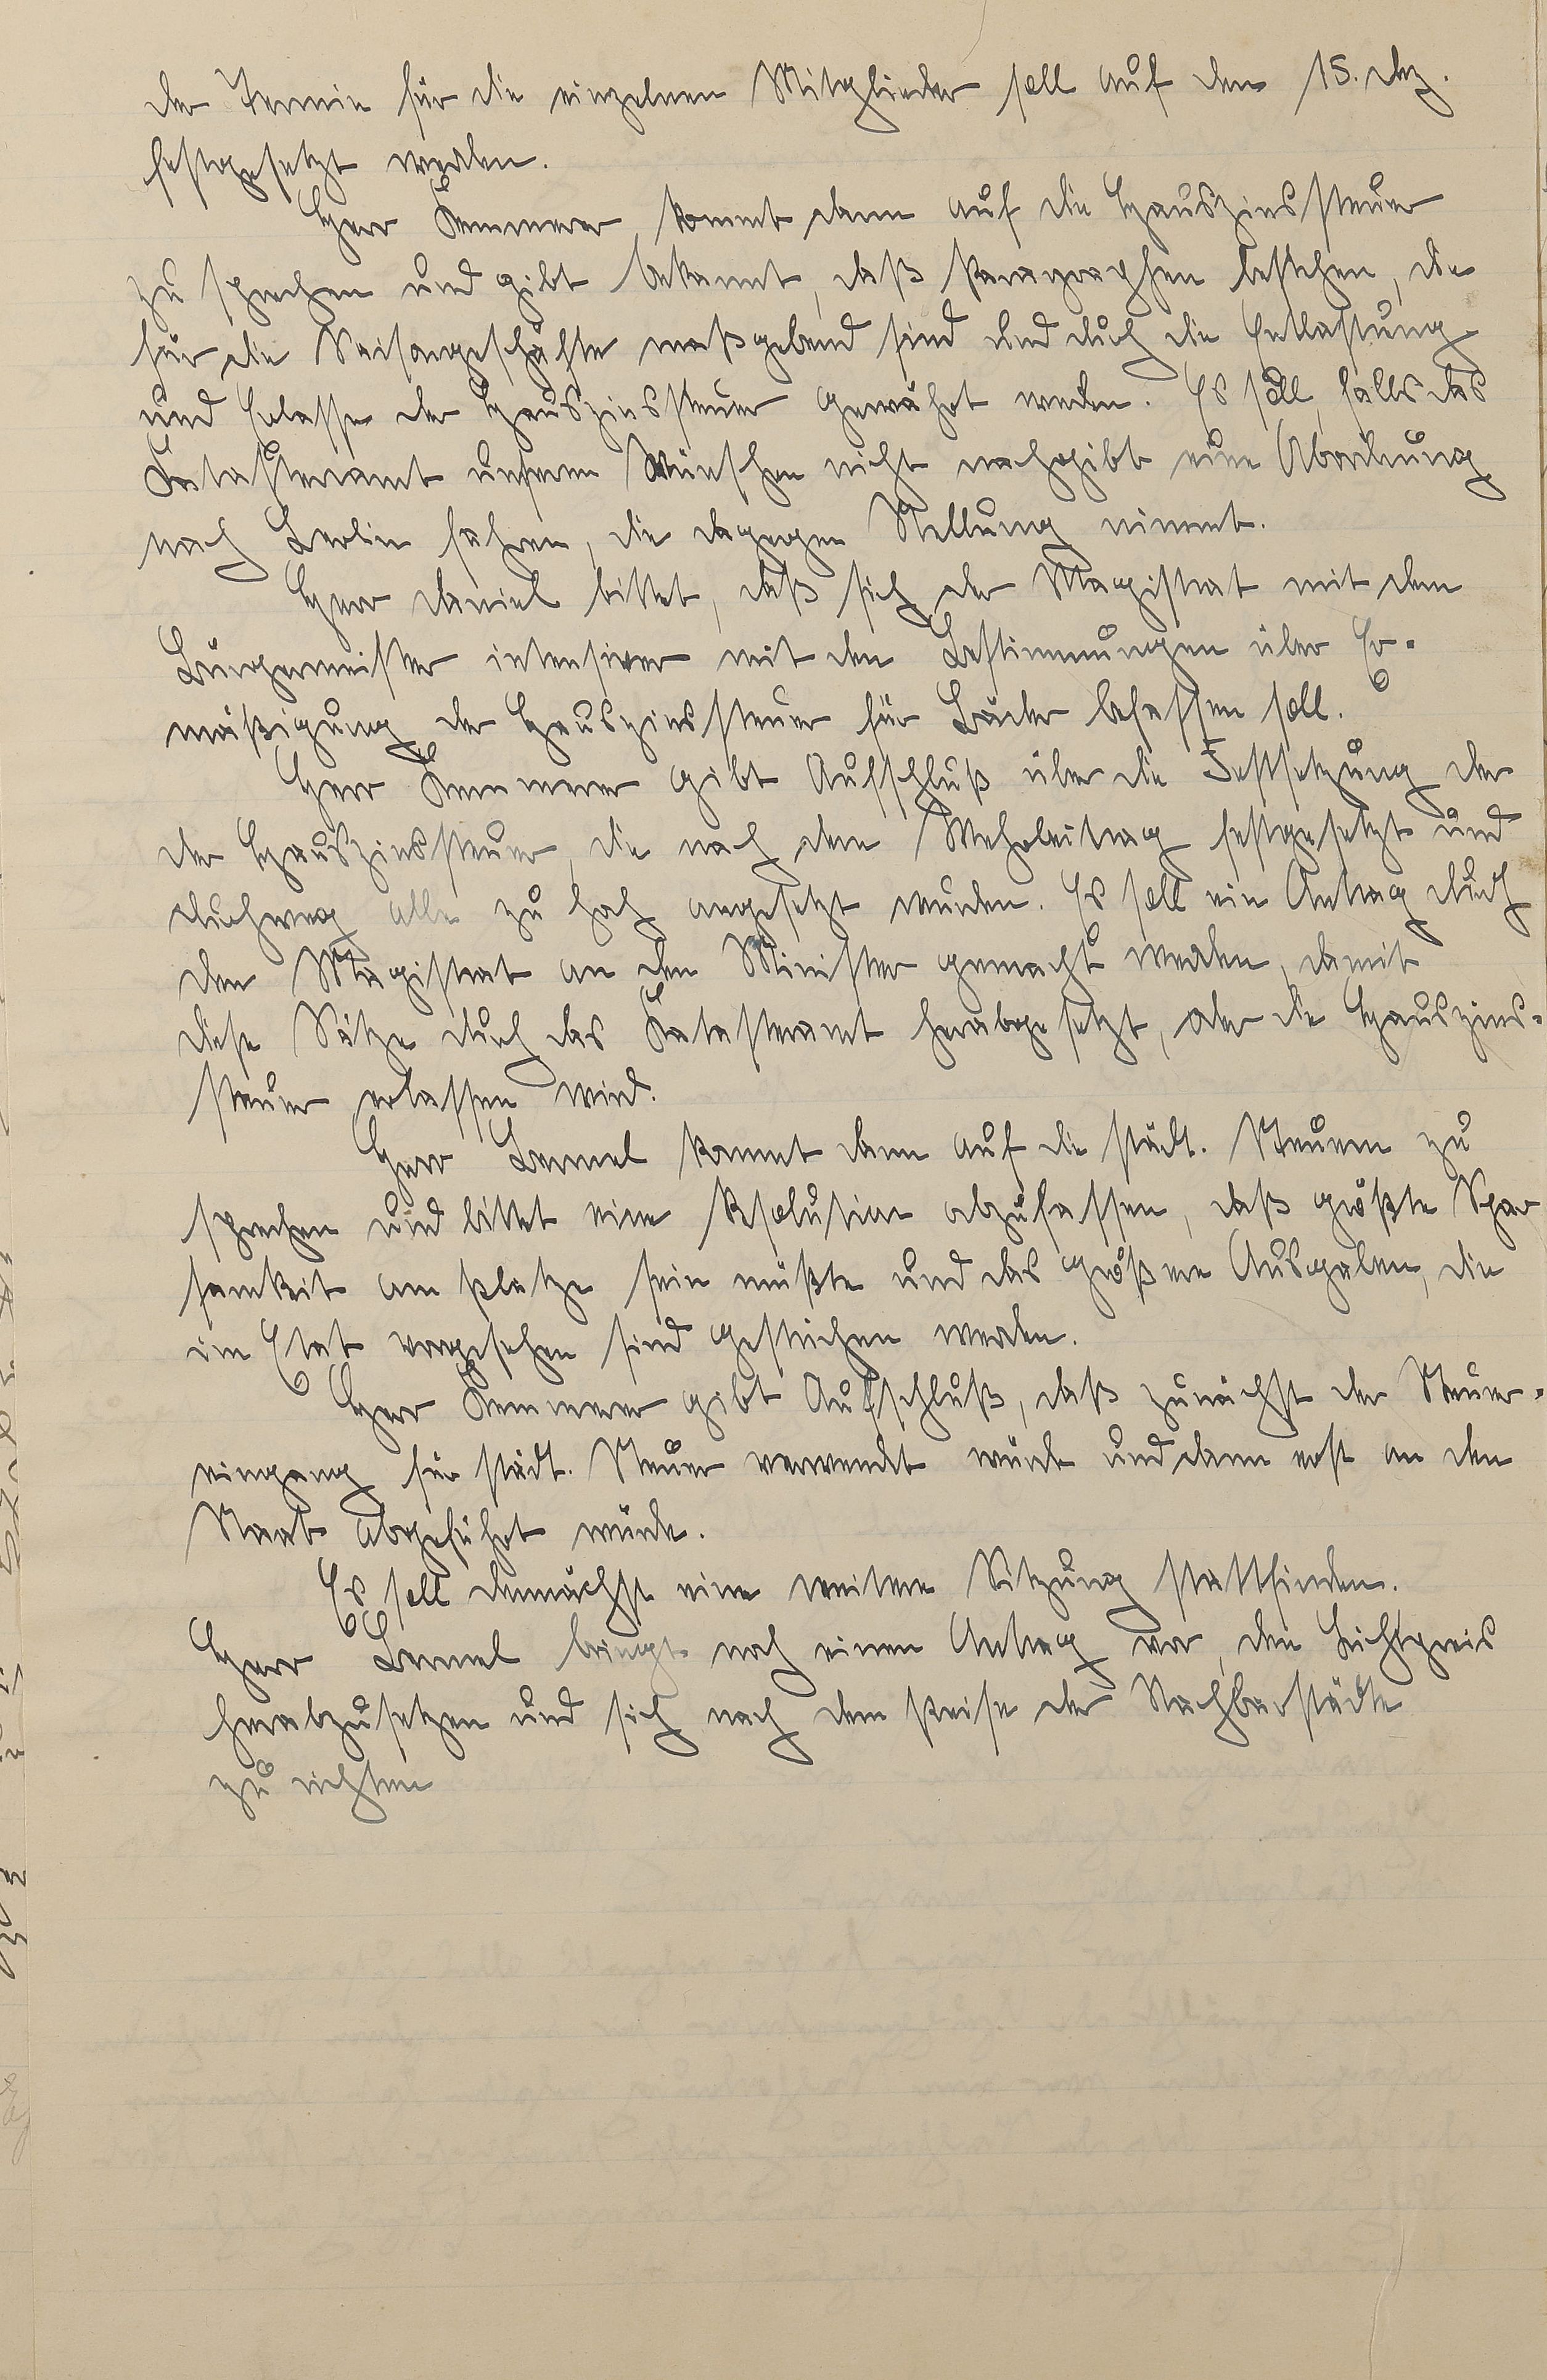 der Termin für die einzelnen Mitglieder soll auf den 15. Dez.
festgesetzt werden.
Herr Kemmerer kommt dann auf die Hauszinssteuer
zu sprechen und gibt bekannt, daß Paragraphen bestehen, die
für die Saisongeschäfte maßgebend sind und duch die Entlastung
und Erlasse der Hauszinssteuer gewährt werden. Es soll, falls das
Katasteramt unseren Wünschen nicht nachgibt eine Abordnung
nach Berlin fahren, die dagegen Stellung nimmt.
Herr Daniel bittet, daß sich der Magistrat mit dem
Bürgermeister intensiver mit den Bestimmungen über Er-
mäßigung der Hauszinssteuer für Bäder befassen soll.
Herr Kemmerer gibt Aufschluß über die Festsetzung der
der Hauszinssteuer, die nach dem Wehrbeitrag festgesetzt und
duchweg alle zu hoch angesetzt wurden. Es soll ein Antrag duch
den Magistrat an den Minister gemacht werden, damit
diese Sätze duch das Katasteramt herabgesetzt, oder die Hauszins-
steuer erlassen wird.
Herr Bemmel kommt dann auf die städt. Steuern zu
sprechen und bittet eine Resolution abzufassen, daß größte Spar
samkeit am Platze sein müßte und das größere Ausgaben, die
im Etat vorgesehen sind gestrichen werden.
Herr Kemmerer gibt Aufschluß, daß zunächst der Steuer-
eingang für städt. Steuer verwendet würde und dann erst an den
Staat abgeführt würde.
Es soll demnächst eine weitere Sitzung stattfinden.
Herr Bemmel bringt noch einen Antrag vor, den Lichtpreis
herabzusetzen und sich nach dem Preise der Nachbarstädte
zu richten